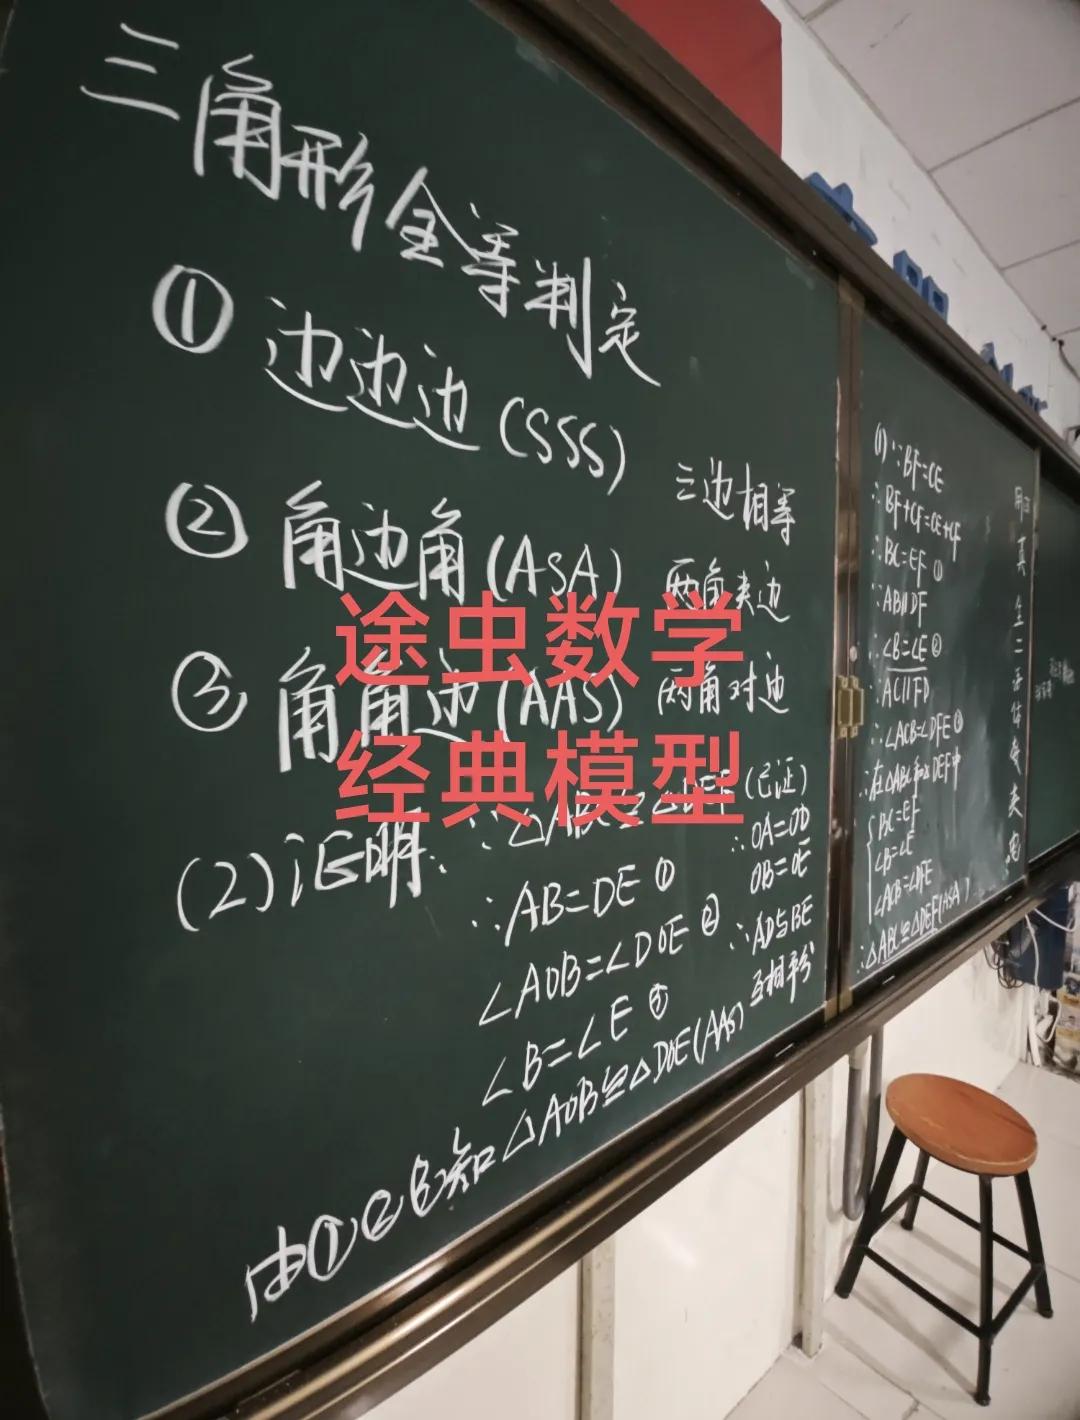 三角形全等判定
① 边边边(SSS)
三边相等
② 角边角(ASA)
两角夹边
③ 角角边(AAS)
两角对边
途虫数学
经典模型
(2)证明: ∵△ABC≌△DEF(已证)
∴AB=DE ①
∠AOB=∠DOE ②
∠B=∠E ③
由①②③知△AOB≌△DOE(AAS)
∴OA=OD
OB=OE
∴AD与BE
互相平分
(1)∵BF=CE
∴BF+CF=CE+CF
∴BC=EF ①
∵AB∥DF
∴∠B=∠E ②
∵AC∥FD
∴∠ACB=∠DFE ③
∴在△ABC和△DEF中
BC=EF
∠B=∠E
∠ACB=∠DFE
∴△ABC≌△DEF(ASA)